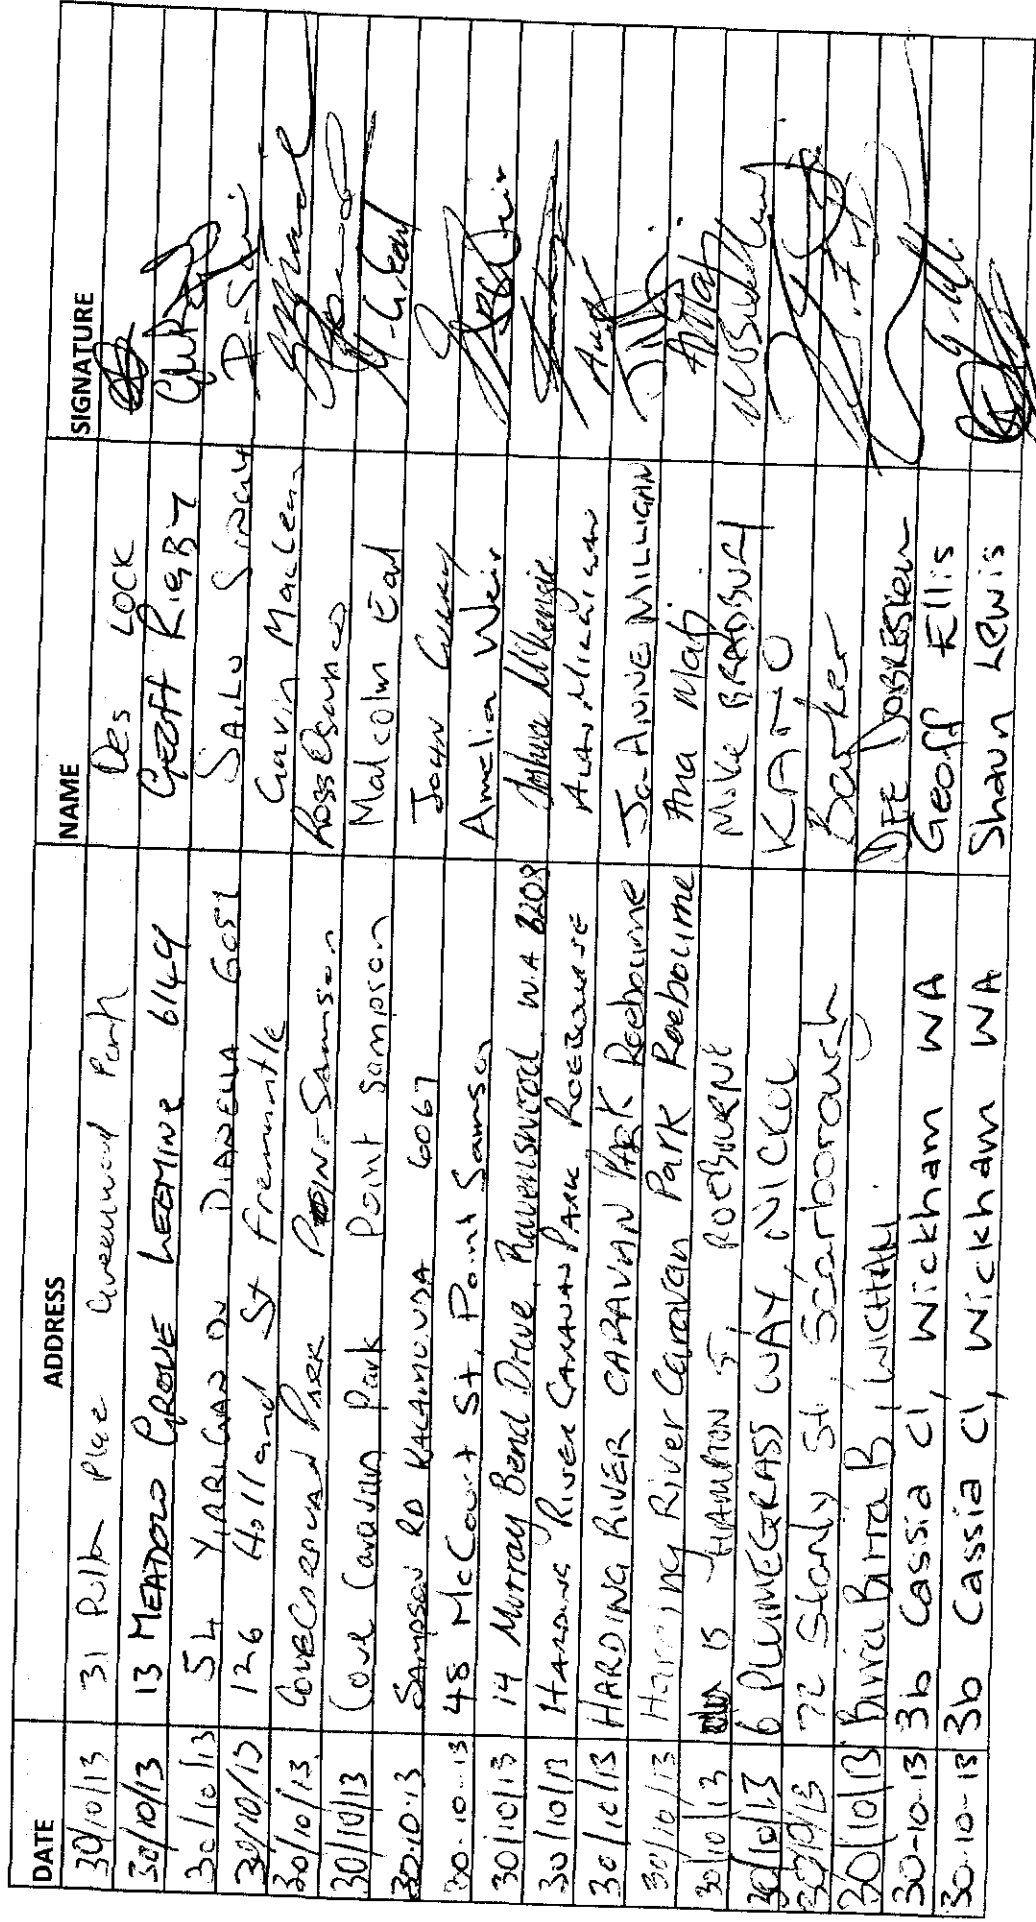 DATE ADDRESS NAME SIGNATURE
30/10/13 31 Place Greenwood Des LOCK
30/10/13 13 MEADOW GROVE LEEMING 6149 Geoff RIGBY
30/10/13 54 YIRRIGAN DV DIANELLA 6051 SAILU SINGH
30/10/13 126 Holland St Fremantle Gavin MacLean
30/10/13 COVE CARAVAN PARK POINT-Samson Ross
30/10/13 Cove Caravan Park Point Sampson Malcolm Earl
30.10.13 SAMPSON RD KALAMUNDA 6067 JOHN
30-10-13 48 McCourt St, Point Samson Amelia Weir
30/10/13 14 Murray Bend Drive, Ravenswood W.A 6208 Joshua McKenzie
30/10/13 HARDING RIVER CARAVAN PARK ROEBOURNE ALAN MILLIGAN
30/10/13 HARDING RIVER CARAVAN PARK Roebourne Jo-ANNE MILLIGAN
30/10/13 Harding River Caravan Park Roebourne Ana Map
30/10/13 15 HAMPTON ST, ROEBOURNE Mike BRADBURY
30/10/13 6 PLUMEGRASS WAY, NICKOL
30/10/13 72 Stanly St. Scarborough Barker
30/10/13 Birra Birra DEE
30-10-13 3b Cassia Cl, Wickham WA Geoff Ellis
30-10-13 3b Cassia Cl, Wickham WA Shaun Lewis